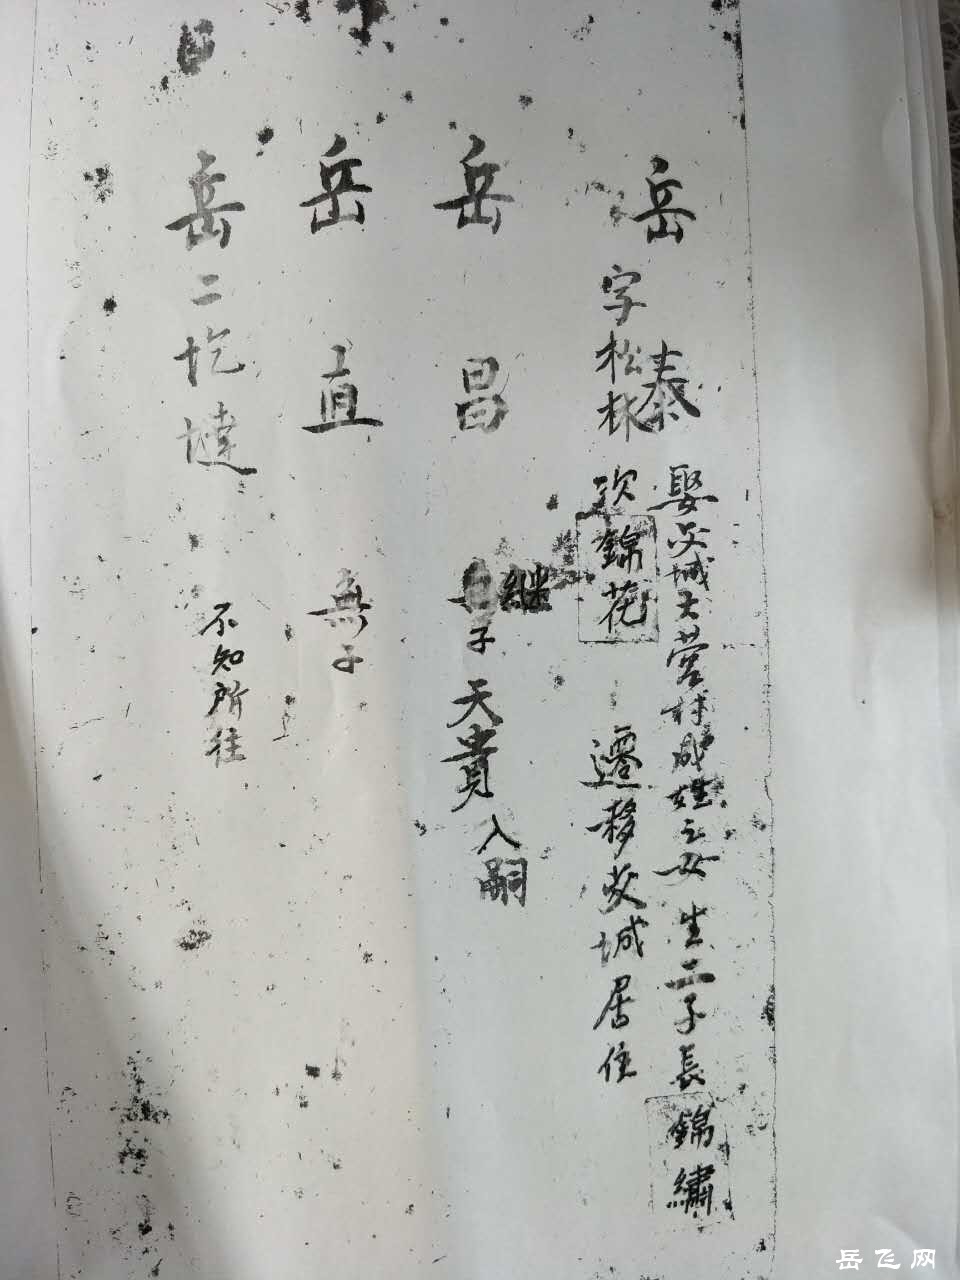 岳泰 娶交城大营村成姓之女 生二子長錦繡
字松林 次錦花 遷移交城居住
岳昌 継子天貴入嗣
岳直 無子
岳二圪墶 不知所往
岳飞网